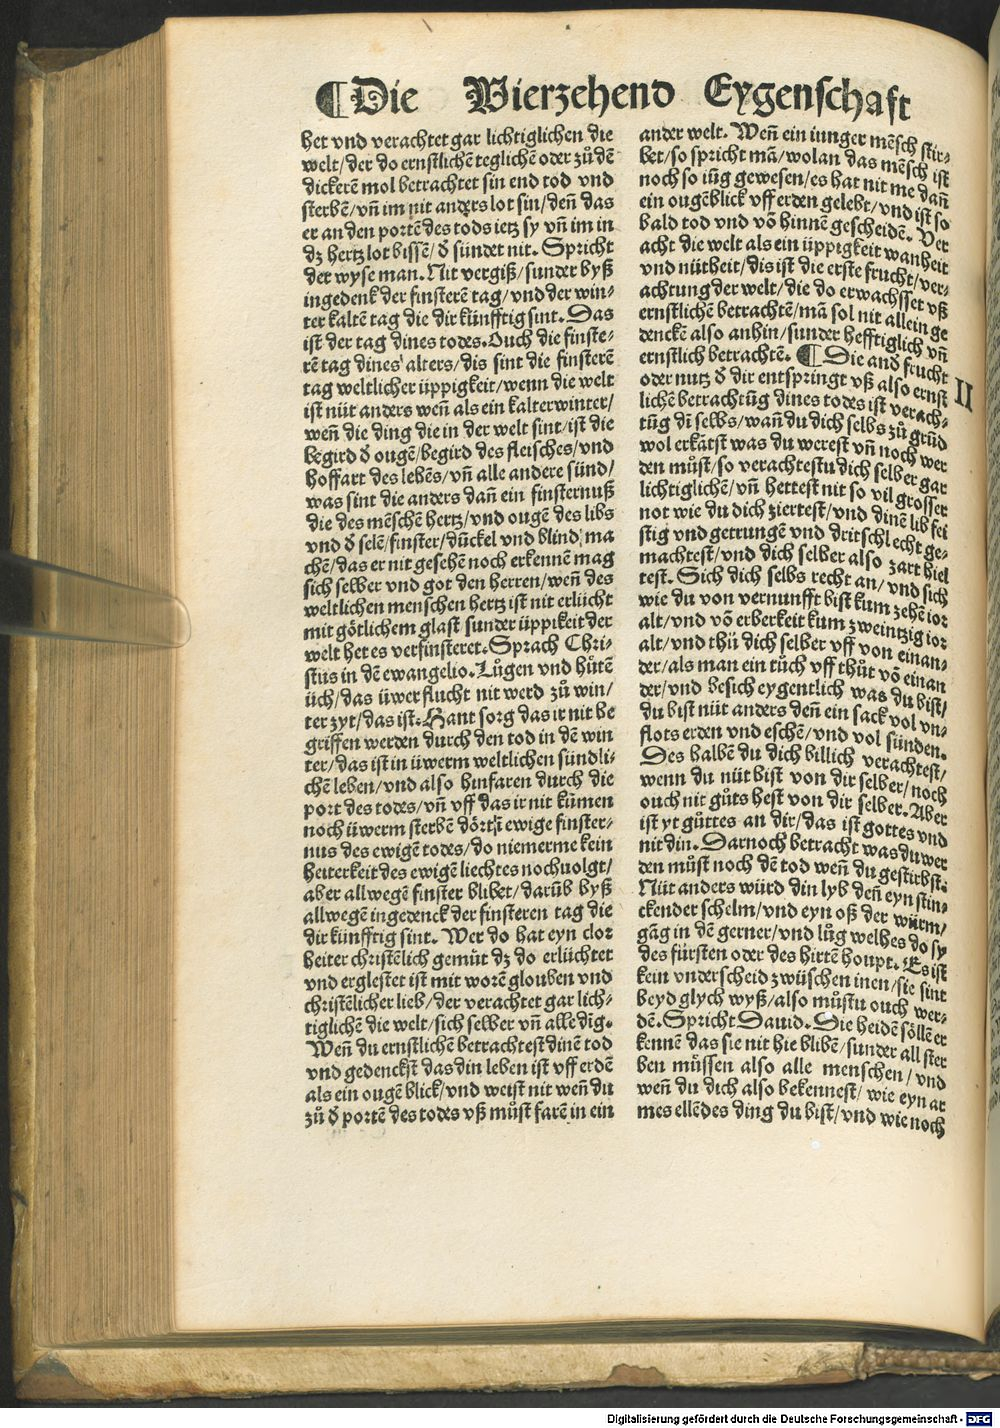 ¶Die Vierzehend Eygenschaft
het vnd verachtet gar lichtiglichen die
welt/der do ernstlichē teglichē oder zů dē
dickerē mol betrachtet sin end tod vnd
sterbē/vn̄ im nit anders lot sin/den̄ das
er an den portē des tods ietz sy vn̄ im in
dz hertz lot bissē/ď sündet nit. Spricht
der wyse man. Nit vergiß/sunder byß
ingedenk der finsterē tag/vnd der win⸗
ter kaltē tag die dir künfftig sint. Das
ist der tag dines todes. Ouch die finste⸗
rē tag dines alters/dis sint die finsterē
tag weltlicher üppigkeit/wenn die welt
ist nüt anders wen̄ als ein kalter winter/
wen̄ die ding die in der welt sint/ist die
begird ď ougē/begird des fleisches/vnd
hoffart des lebēs/vn̄ alle andere sünd/
was sint die anders dan̄ ein finsternuß
die des mēschē hertz/vnd ougē des libs
vnd ď selē/finster/dückel vnd blind ma
chē/das er nit gesehē noch erkennē mag
sich selber vnd got den herren/wen̄ des
weltlichen menschen hertz ist nit erlücht
mit götlichem glast sunder üppikeit der
welt het es verfinsteret. Sprach Chri⸗
stus in dē ewangelio. Lůgen vnd hütē
üch/das üwer flucht nit werd zů win/
ter zyt/das ist. Hant sorg das ir nit be
griffen werden durch den tod in dē win
ter/das ist in üwerm weltlichen sündli⸗
chē leben/vnd also hinfaren durch die
port des todes/vn̄ vff das ir nit kūmen
noch üwerm sterbē dört ī ewige finster⸗
nus des ewigē todes/do niemerme kein
heiterkeit des ewigē liechtes nochuolgt/
aber allwegē finster blibet/darūb byß
allwegē ingedenck der finsteren tag die
dir künfftig sint. Wer do hat eyn clor
heiter christēlich gemüt dz do erlüchtet
vnd erglestet ist mit worē glouben vnd
christēlicher lieb/der verachtet gar lich⸗
tiglichē die welt/sich selber vn̄ alle dīg.
Wen̄ du ernstlichē betrachtest dinē tod
vnd gedenckst das din leben ist vff erdē
als ein ougē blick/vnd weist nit wen̄ du
zů ď portē des todes vß můst farē in ein
ander welt. Wen̄ ein iunger mēsch stir⸗
bet/so spricht mā/wolan das mēsch ist
noch so iūg gewesen/es hat nit me dan̄
ein ougēblick vff erden gelebt/vnd ist so
bald tod vnd vō hinnē gescheidē. Ver
acht die welt als ein üppigkeit wanheit
vnd nütheit/dis ist die erste frucht/ver⸗
achtung der welt/die do erwachsset vß
ernstlichē betrachtē/mā sol nit allein ge
denckē also anhin/sunder hefftiglich vn̄
ernstlich betrachtē. ¶Die and frucht
II
oder nutz ď dir entspringt vß also ernst
lichē betrachtūg dines todes ist verach⸗
tūg dī selbs/wan̄ du dich selbs zů grūd
wol erkātst was du werest vn̄ noch wer
den můst/so verachtestu dich selber gar
lichtiglichē/vn̄ hettest nit so vil grosser
not wie du dich ziertest/vnd dinē lib fei
stig vnd getrungen vnd dritschlecht ge⸗
machtest/vnd dich selber also zart hiel
test. Sich dich selbs recht an/vnd sich
wie du von vernunfft bist kum zehē ior
alt/vnd vō erberkeit kum zweintzig ior
alt/vnd thü dich selber vff von einan⸗
der/als man ein tůch vff thůt vō einan
der/vnd besich eygentlich was du bist/
du bist nüt anders den̄ ein sack vol vn⸗
flots erden vnd eschē/vnd vol sünden.
Des halbē du dich billich verachtest/
wenn du nüt bist von dir selber/noch
ouch nit gůts hest von dir selber. Aber
ist yt gůttes an dir/das ist gottes vnd
nit din. Darnoch betracht was du wer
den můst noch dē tod wen̄ du gestirbst.
Nüt anders würd din lyb den̄ eyn stin⸗
ckender schelm/vnd eyn oß der würm/
gāg in dē gerner/vnd lůg welhes do sy
des fürsten oder des hirtē houpt. Es ist
kein vnderscheid zwüschen inen/sie sint
beyd glych wyß/also můstu ouch wer⸗
dē. Spricht Dauid. Die heidē söllē er
kennē das sie nit hie blibē/sunder all ster
ben müssen also alle menschen/vnd
wen̄ du dich also bekennest/wie eyn ar
mes ellēdes ding du bist/vnd wie noch
Digitalisierung gefördert durch die Deutsche Forschungsgemeinschaft - DFG